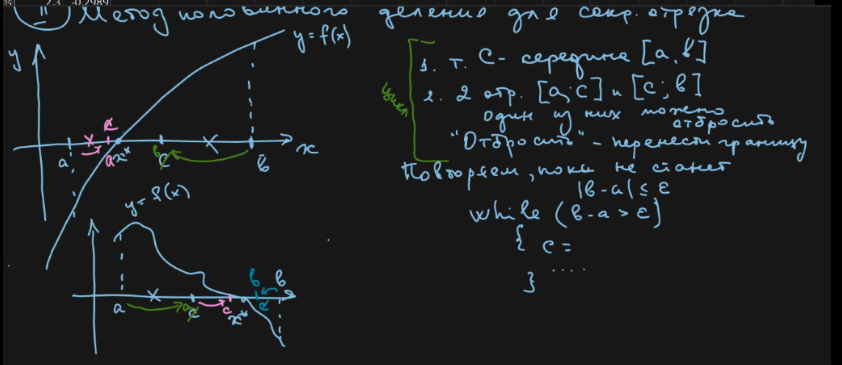 25
2.3 -0.2989
II Метод половинного деления для сокр. отрезка
y = f(x)
y
a
c
a x*
b c
b
x
цикл
1. т. C - середина [a, b]
2. 2 отр. [a; c] и [c; b]
один из них можно отбросить
"Отбросить" - перенести границу
Повторяем, пока не станет
|b-a| ≤ ε
while (b-a > ε)
{ c =
....
}
y = f(x)
a
c
c
x*
b
b